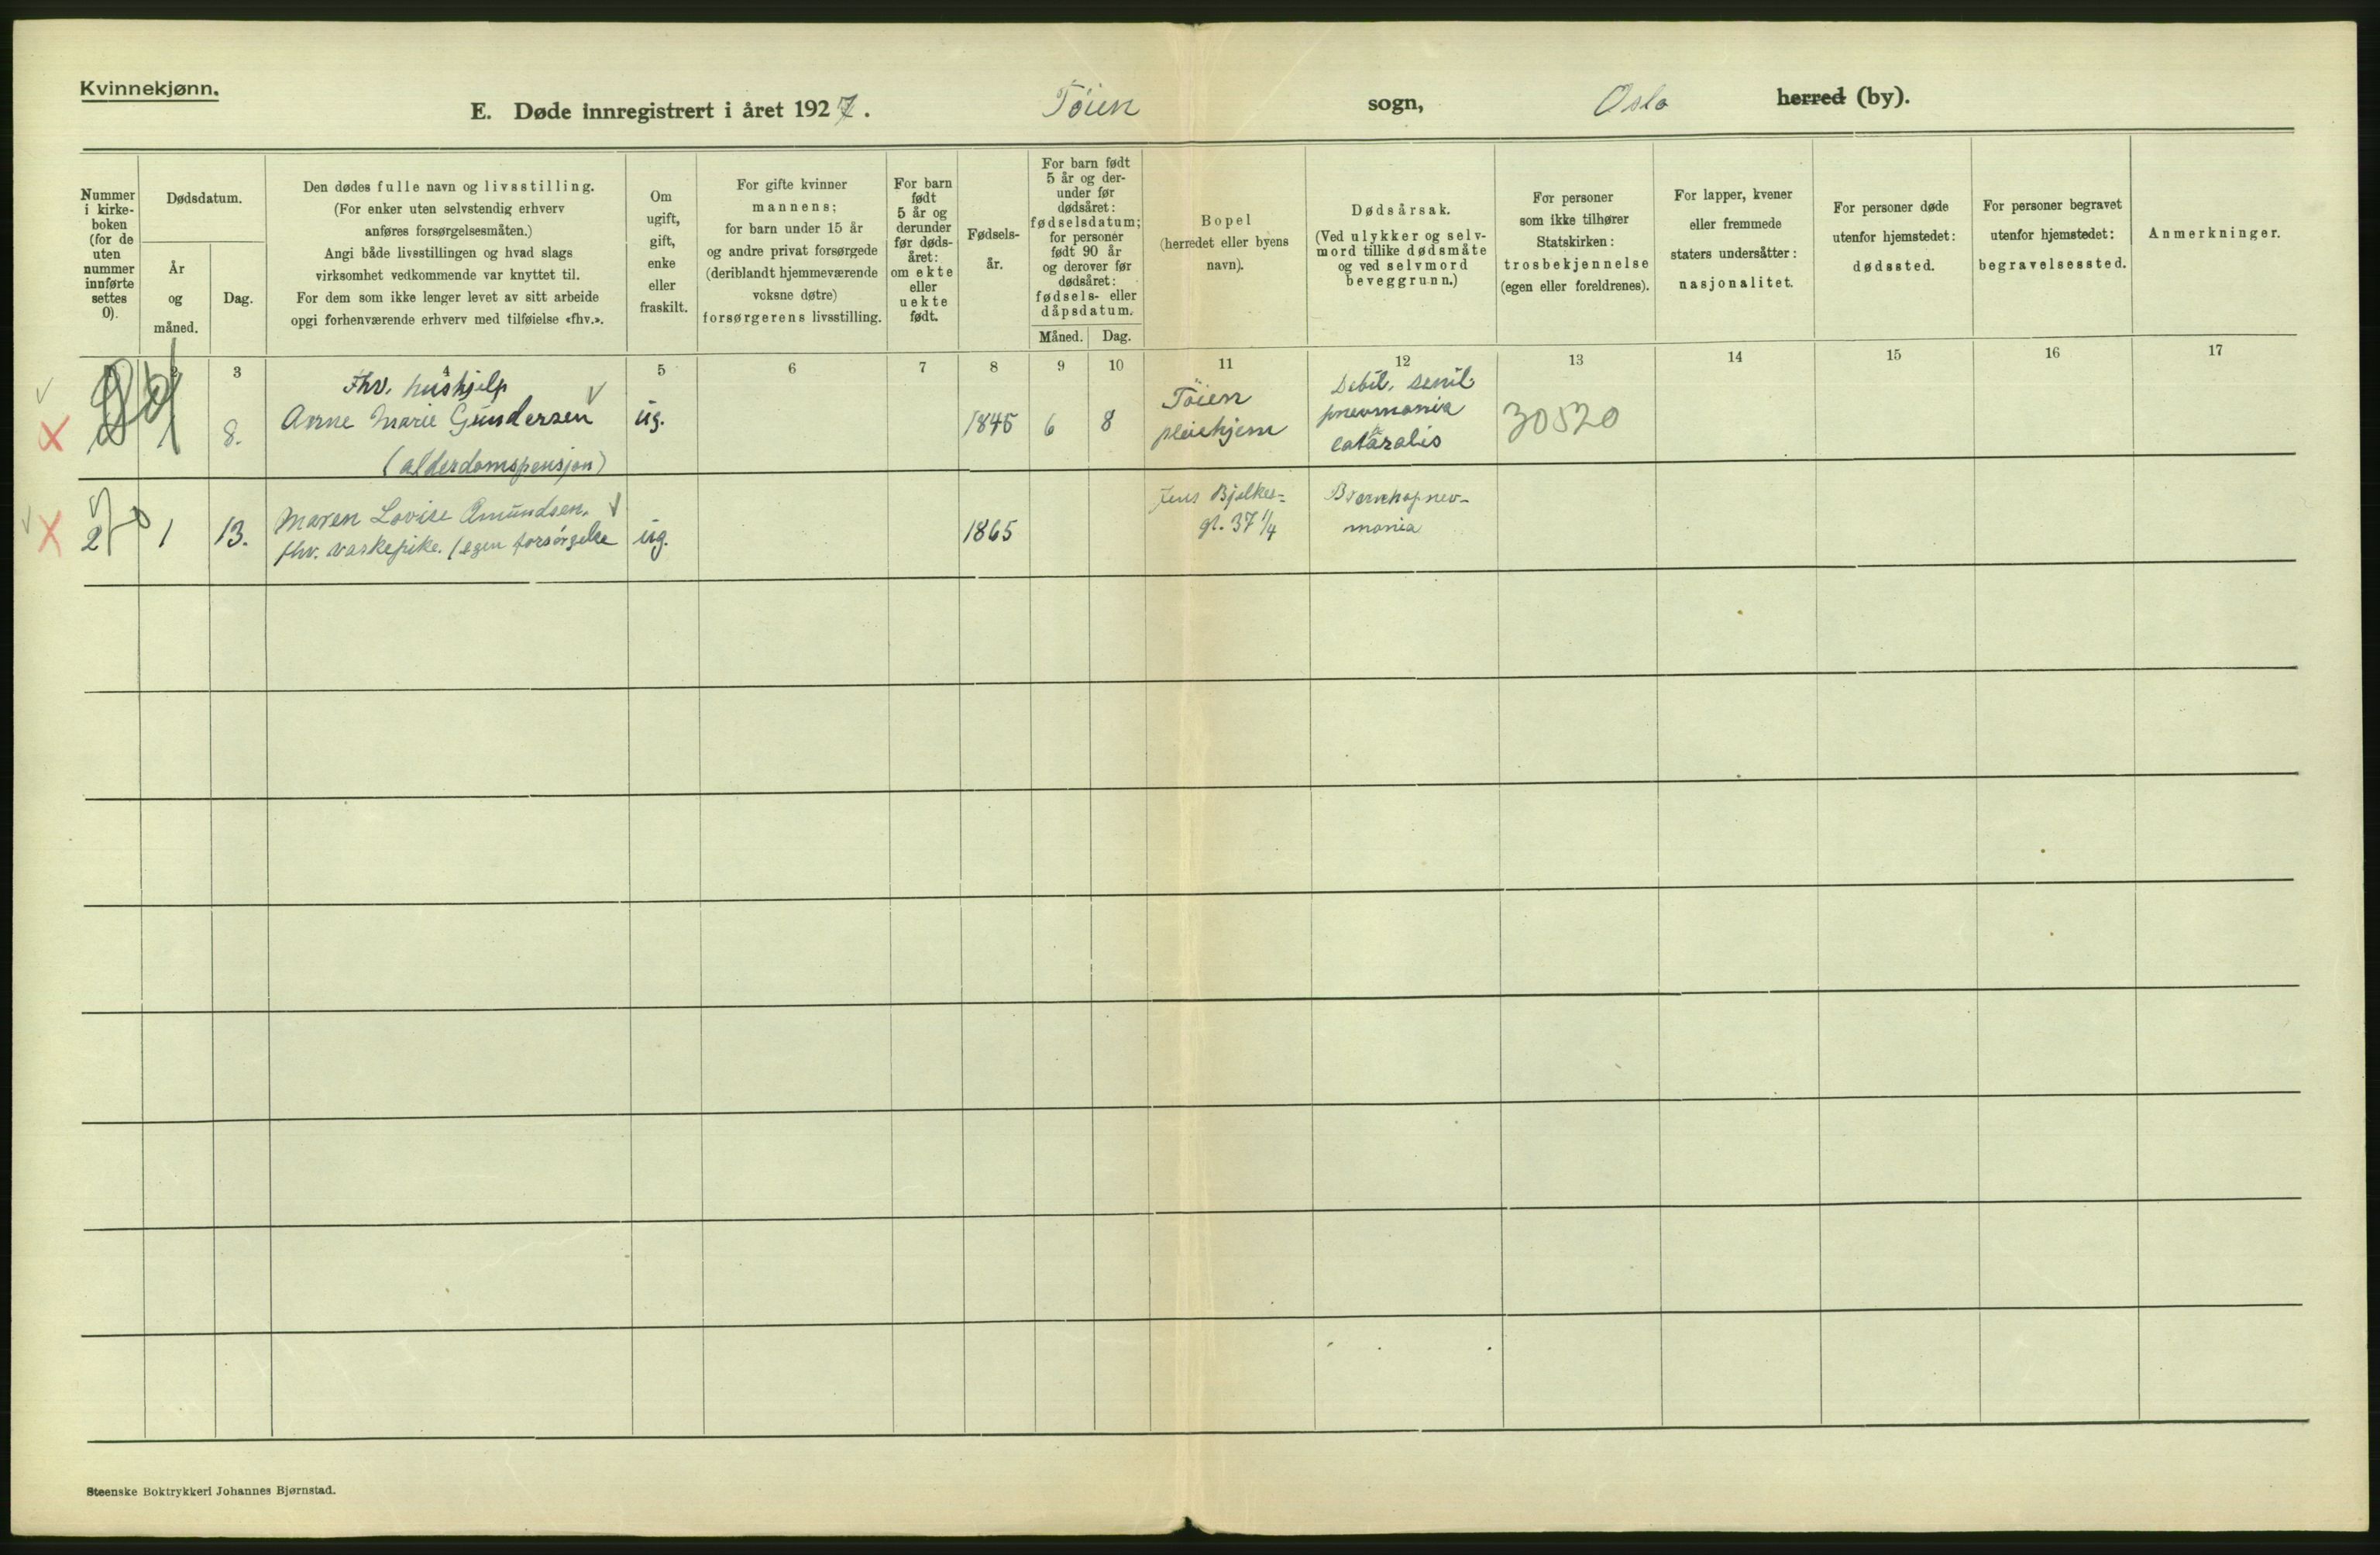 Kvinnekjønn.
E. Døde innregistrert i året 1927. Töien sogn, Oslo herred (by).
Nummer i kirke- boken (for de uten nummer innførte settes 0).
Dødsdatum.
År og måned.
Dag.
Den dødes fulle navn og livsstilling.
(For enker uten selvstendig erhverv
anføres forsørgelsesmåten.)
Angi både livsstillingen og hvad slags
virksomhet vedkommende var knyttet til.
For dem som ikke lenger levet av sitt arbeide
opgi forhenværende erhverv med tilføielse «fhv.».
Om
ugift,
gift,
enke
eller
fraskilt.
For gifte kvinner
mannens;
for barn under 15 år
og andre privat forsørgede
(deriblandt hjemmeværende
voksne døtre)
forsørgerens livsstilling.
For barn
født
5 år og
derunder
før døds-
året:
om ekte
eller
uekte
født.
Fødsels-
år.
For barn født
5 år og der-
under før
dødsåret:
fødselsdatum;
for personer
født 90 år
og derover før
dødsåret:
fødsels- eller
dåpsdatum.
Måned. Dag.
Bopel
(herredet eller byens
navn).
Dødsårsak.
(Ved ulykker og selv-
mord tillike dødsmåte
og ved selvmord
beveggrunn.)
For personer
som ikke tilhører
Statskirken:
trosbekjennelse
(egen eller foreldrenes).
For lapper, kvener
eller fremmede
staters undersåtter:
nasjonalitet.
For personer døde
utenfor hjemstedet:
dødssted.
For personer begravet
utenfor hjemstedet:
begravelsessted.
Anmerkninger.
2 3 4 5 6 7 8 9 10 11 12 13 14 15 16 17
X 1 8.
Fhv. hushjelp
Anne Marie Gundersen
(alderdomspensjon)
ug. 1845 6 8
Töien
pleiehjem
Debil. senil.
pneumonia
cataralis
30520
X 2 1 13.
Maren Lovise Amundsen.
fhv. vaskepike. (egen forsørgelse
ug. 1865
Jens Bjelkes-
gt. 37 1/4
Bronchopnev-
monia
Steenske Boktrykkeri Johannes Bjørnstad.